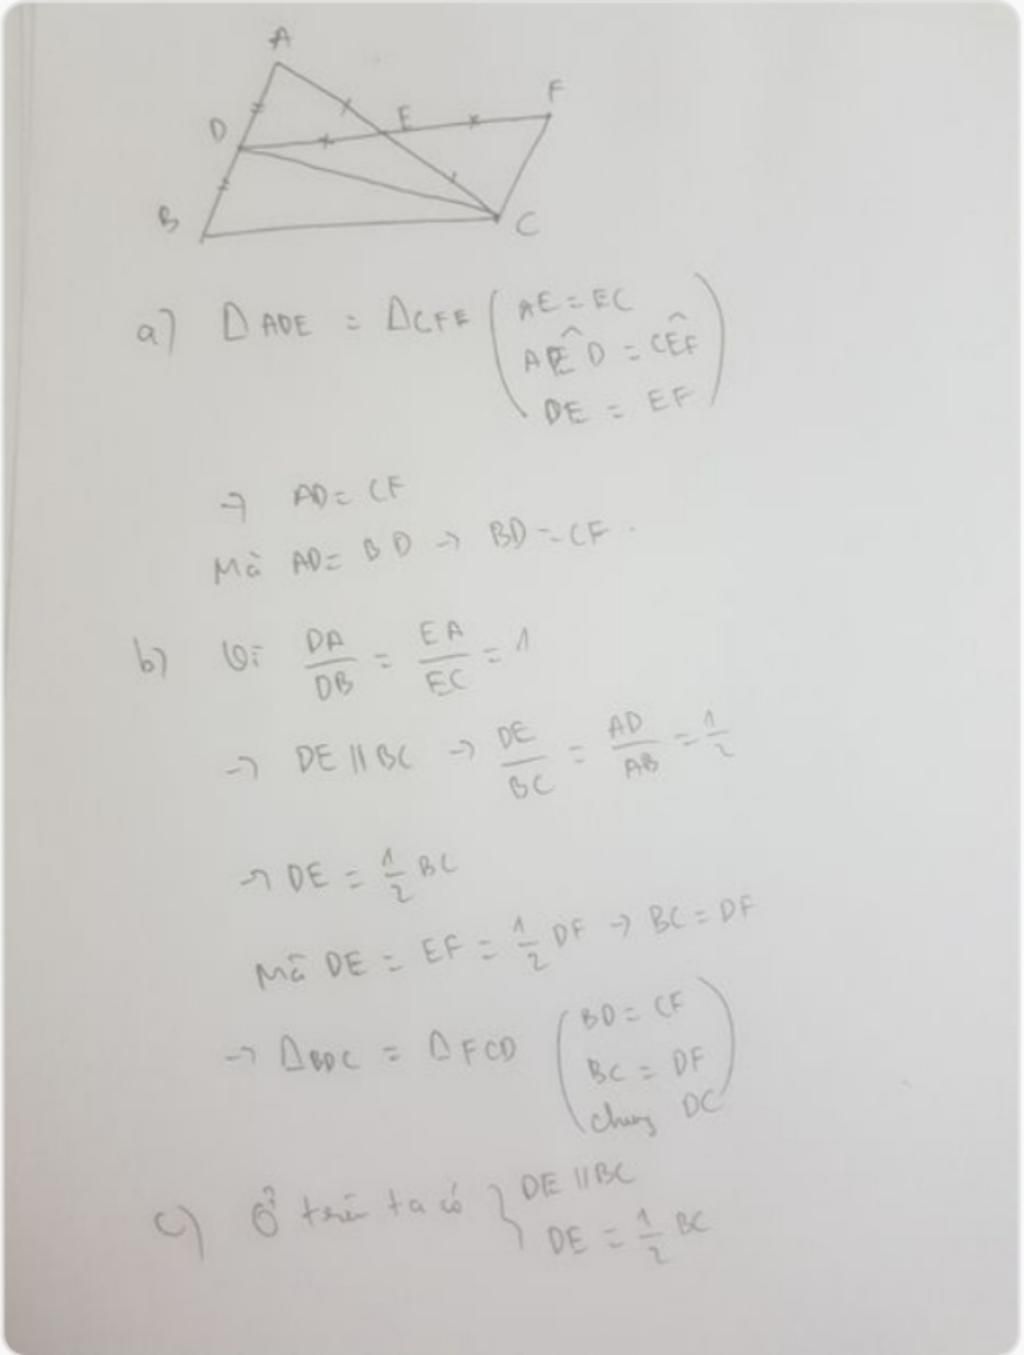 A
D
E
F
B
C
a) Δ ADE = Δ CFE ( AE = EC
AÊD = CÊF
DE = EF )
→ AD = CF
Mà AD = BD → BD = CF.
b) Vì DA/DB = EA/EC = 1
→ DE // BC → DE/BC = AD/AB = 1/2
→ DE = 1/2 BC
Mà DE = EF = 1/2 DF → BC = DF
→ Δ BDC = Δ FCD ( BD = CF
BC = DF
chung DC )
c) Ở trên ta có } DE // BC
DE = 1/2 BC